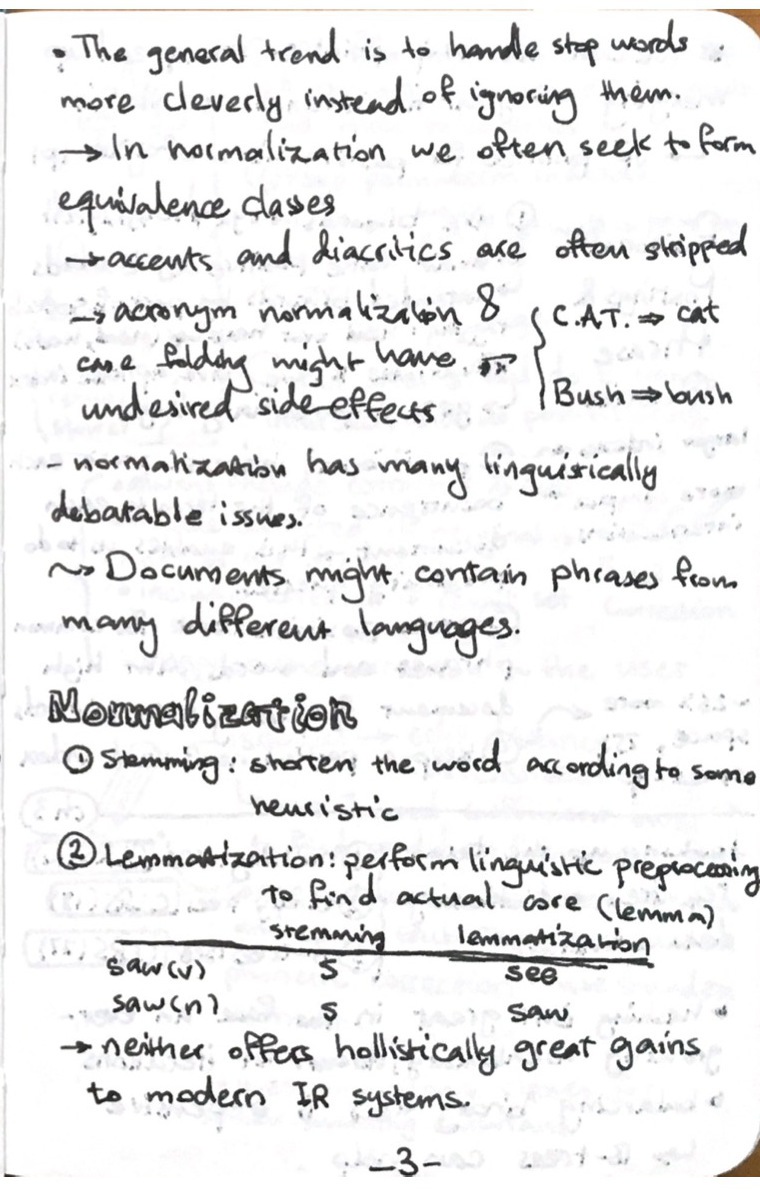 • The general trend is to handle stop words
more cleverly instead of ignoring them.
→ In normalization we often seek to form
equivalence classes
→ accents and diacritics are often stripped
→ acronym normalization &
case folding might have
undesired side effects
C.A.T. ⇒ cat
Bush ⇒ bush
- normalization has many linguistically
debatable issues.
~> Documents might contain phrases from
many different languages.
Normalization
① Stemming: shorten the word according to some
heuristic
② Lemmatization: perform linguistic preprocessing
to find actual core (lemma)
stemming lemmatization
saw(v) s see
saw(n) s saw
→ neither offers hollistically great gains
to modern IR systems.
-3-